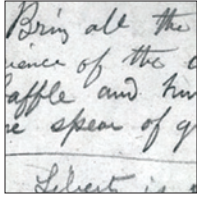 Bring all the
ience of the
baffle and
re spear of
Liberty is